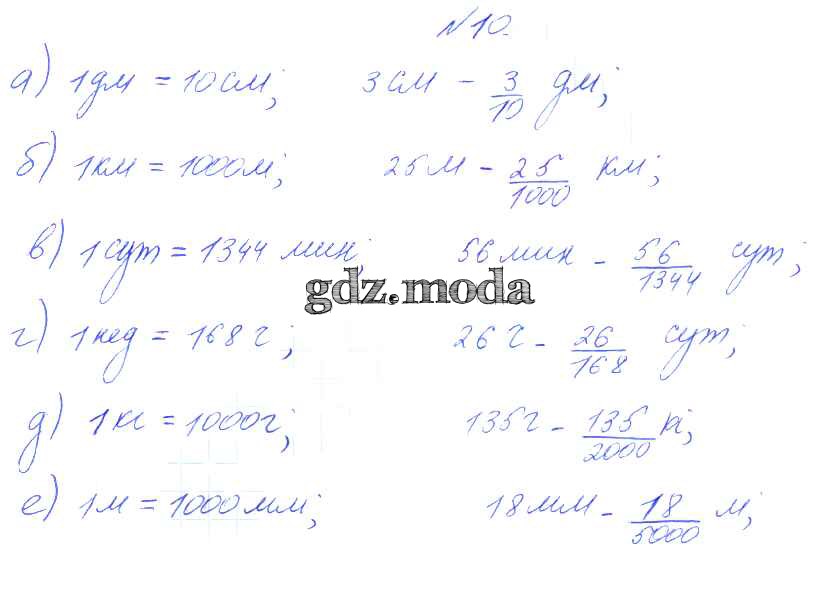 №10.
а) 1дм = 10см; 3см - 3/10 дм;
б) 1км = 1000м; 25м - 25/1000 км;
в) 1сут = 1344 мин; 56мин - 56/1344 сут;
gdz.moda
г) 1нед = 168г; 26г - 26/168 сут;
д) 1кг = 1000г; 135г - 135/2000 кг;
е) 1м = 1000мм; 18мм - 18/5000 м;